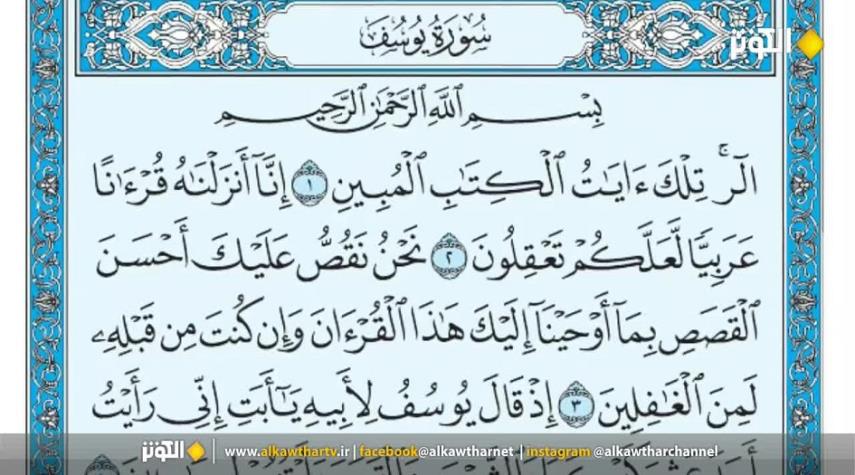 سُورَةُ يُوسُفَ
الكوثر
بِسْمِ ٱللَّهِ ٱلرَّحْمَٰنِ ٱلرَّحِيمِ
الٓرۚ تِلْكَ ءَايَٰتُ ٱلْكِتَٰبِ ٱلْمُبِينِ ١ إِنَّآ أَنزَلْنَٰهُ قُرْءَٰنًا
عَرَبِيًّا لَّعَلَّكُمْ تَعْقِلُونَ ٢ نَحْنُ نَقُصُّ عَلَيْكَ أَحْسَنَ
ٱلْقَصَصِ بِمَآ أَوْحَيْنَآ إِلَيْكَ هَٰذَا ٱلْقُرْءَانَ وَإِن كُنتَ مِن قَبْلِهِۦ
لَمِنَ ٱلْغَٰفِلِينَ ٣ إِذْ قَالَ يُوسُفُ لِأَبِيهِ يَٰٓأَبَتِ إِنِّي رَأَيْتُ
الكوثر | www.alkawthartv.ir | facebook@alkawthartnet | instagram @alkawtharchannel